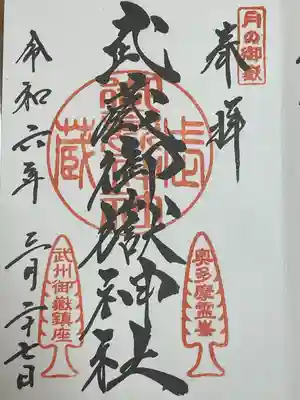 月の御嶽
奉拝
奥多摩霊峯
武蔵御嶽神社
武蔵
武州御嶽鎮座
令和六年 三月二十七日